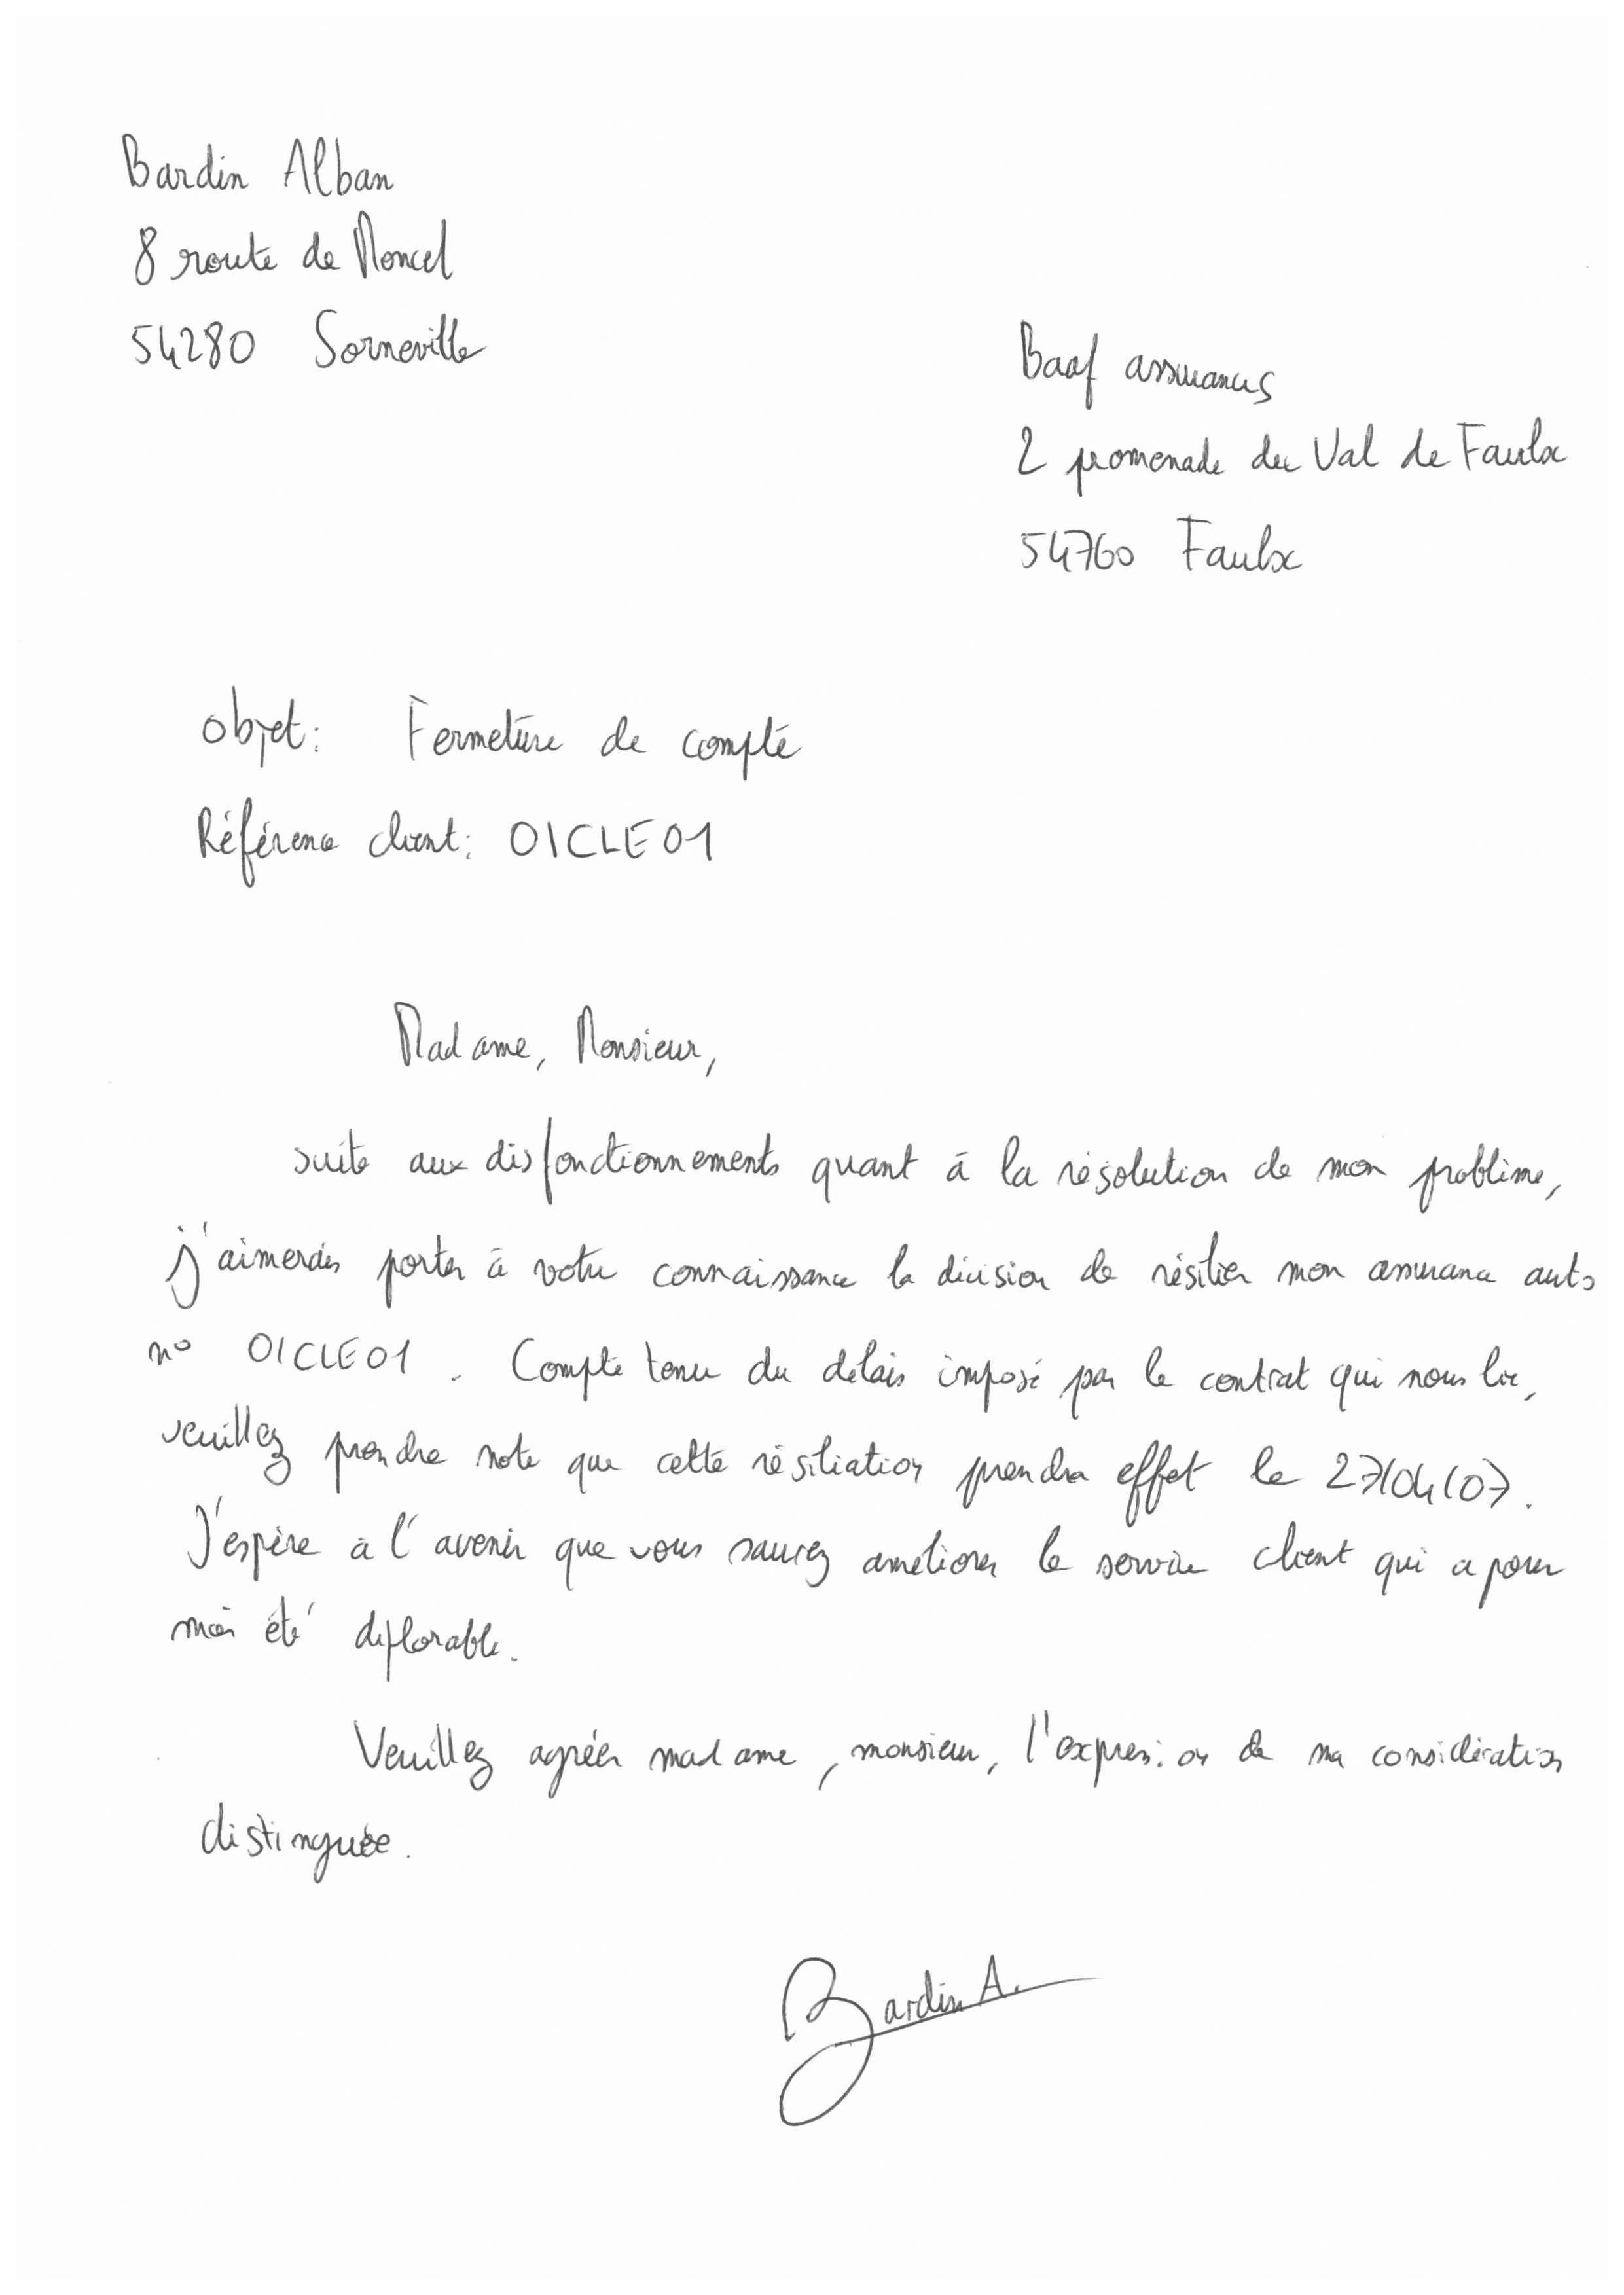 Bardin Alban
8 route de Moncel
54280 Sorneville
Baaf assurances
2 promenade du Val de Faulx
54760 Faulx
objet: Fermeture de compte
Référence client: OICLE01
Madame, Monsieur,
suite aux disfonctionnements quant à la résolution de mon problème,
j'aimerais porter à votre connaissance la décision de résilier mon assurance auto
n° OICLE01. Compte tenu du délais imposé par le contrat qui nous lie,
veuillez prendre note que cette résiliation prendra effet le 27/04/07.
J'espère à l'avenir que vous saurez améliorer le service client qui a pour
moi été déplorable.
Veuillez agréer madame, monsieur, l'expression de ma considération
distinguée.
Bardin A.